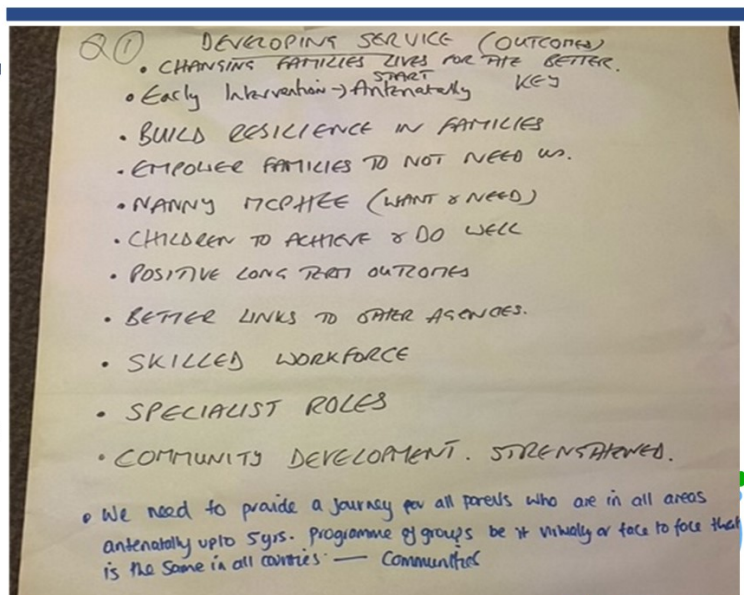 Q1 DEVELOPING SERVICE (OUTCOMES)
• CHANGING FAMILIES LIVES FOR THE BETTER.
• Early Intervention → START Antenatally KEY
• BUILD RESILIENCE IN FAMILIES
• EMPOWER FAMILIES TO NOT NEED US.
• NANNY MCPHEE (WANT & NEED)
• CHILDREN TO ACHIEVE & DO WELL
• POSITIVE LONG TERM OUTCOMES
• BETTER LINKS TO OTHER AGENCIES.
• SKILLED WORKFORCE
• SPECIALIST ROLES
• COMMUNITY DEVELOPMENT. STRENGTHENED.
• We need to provide a Journey for all parents who are in all areas
antenatally upto 5yrs. Programme of groups be it virtually or face to face that
is the same in all counties — Communities